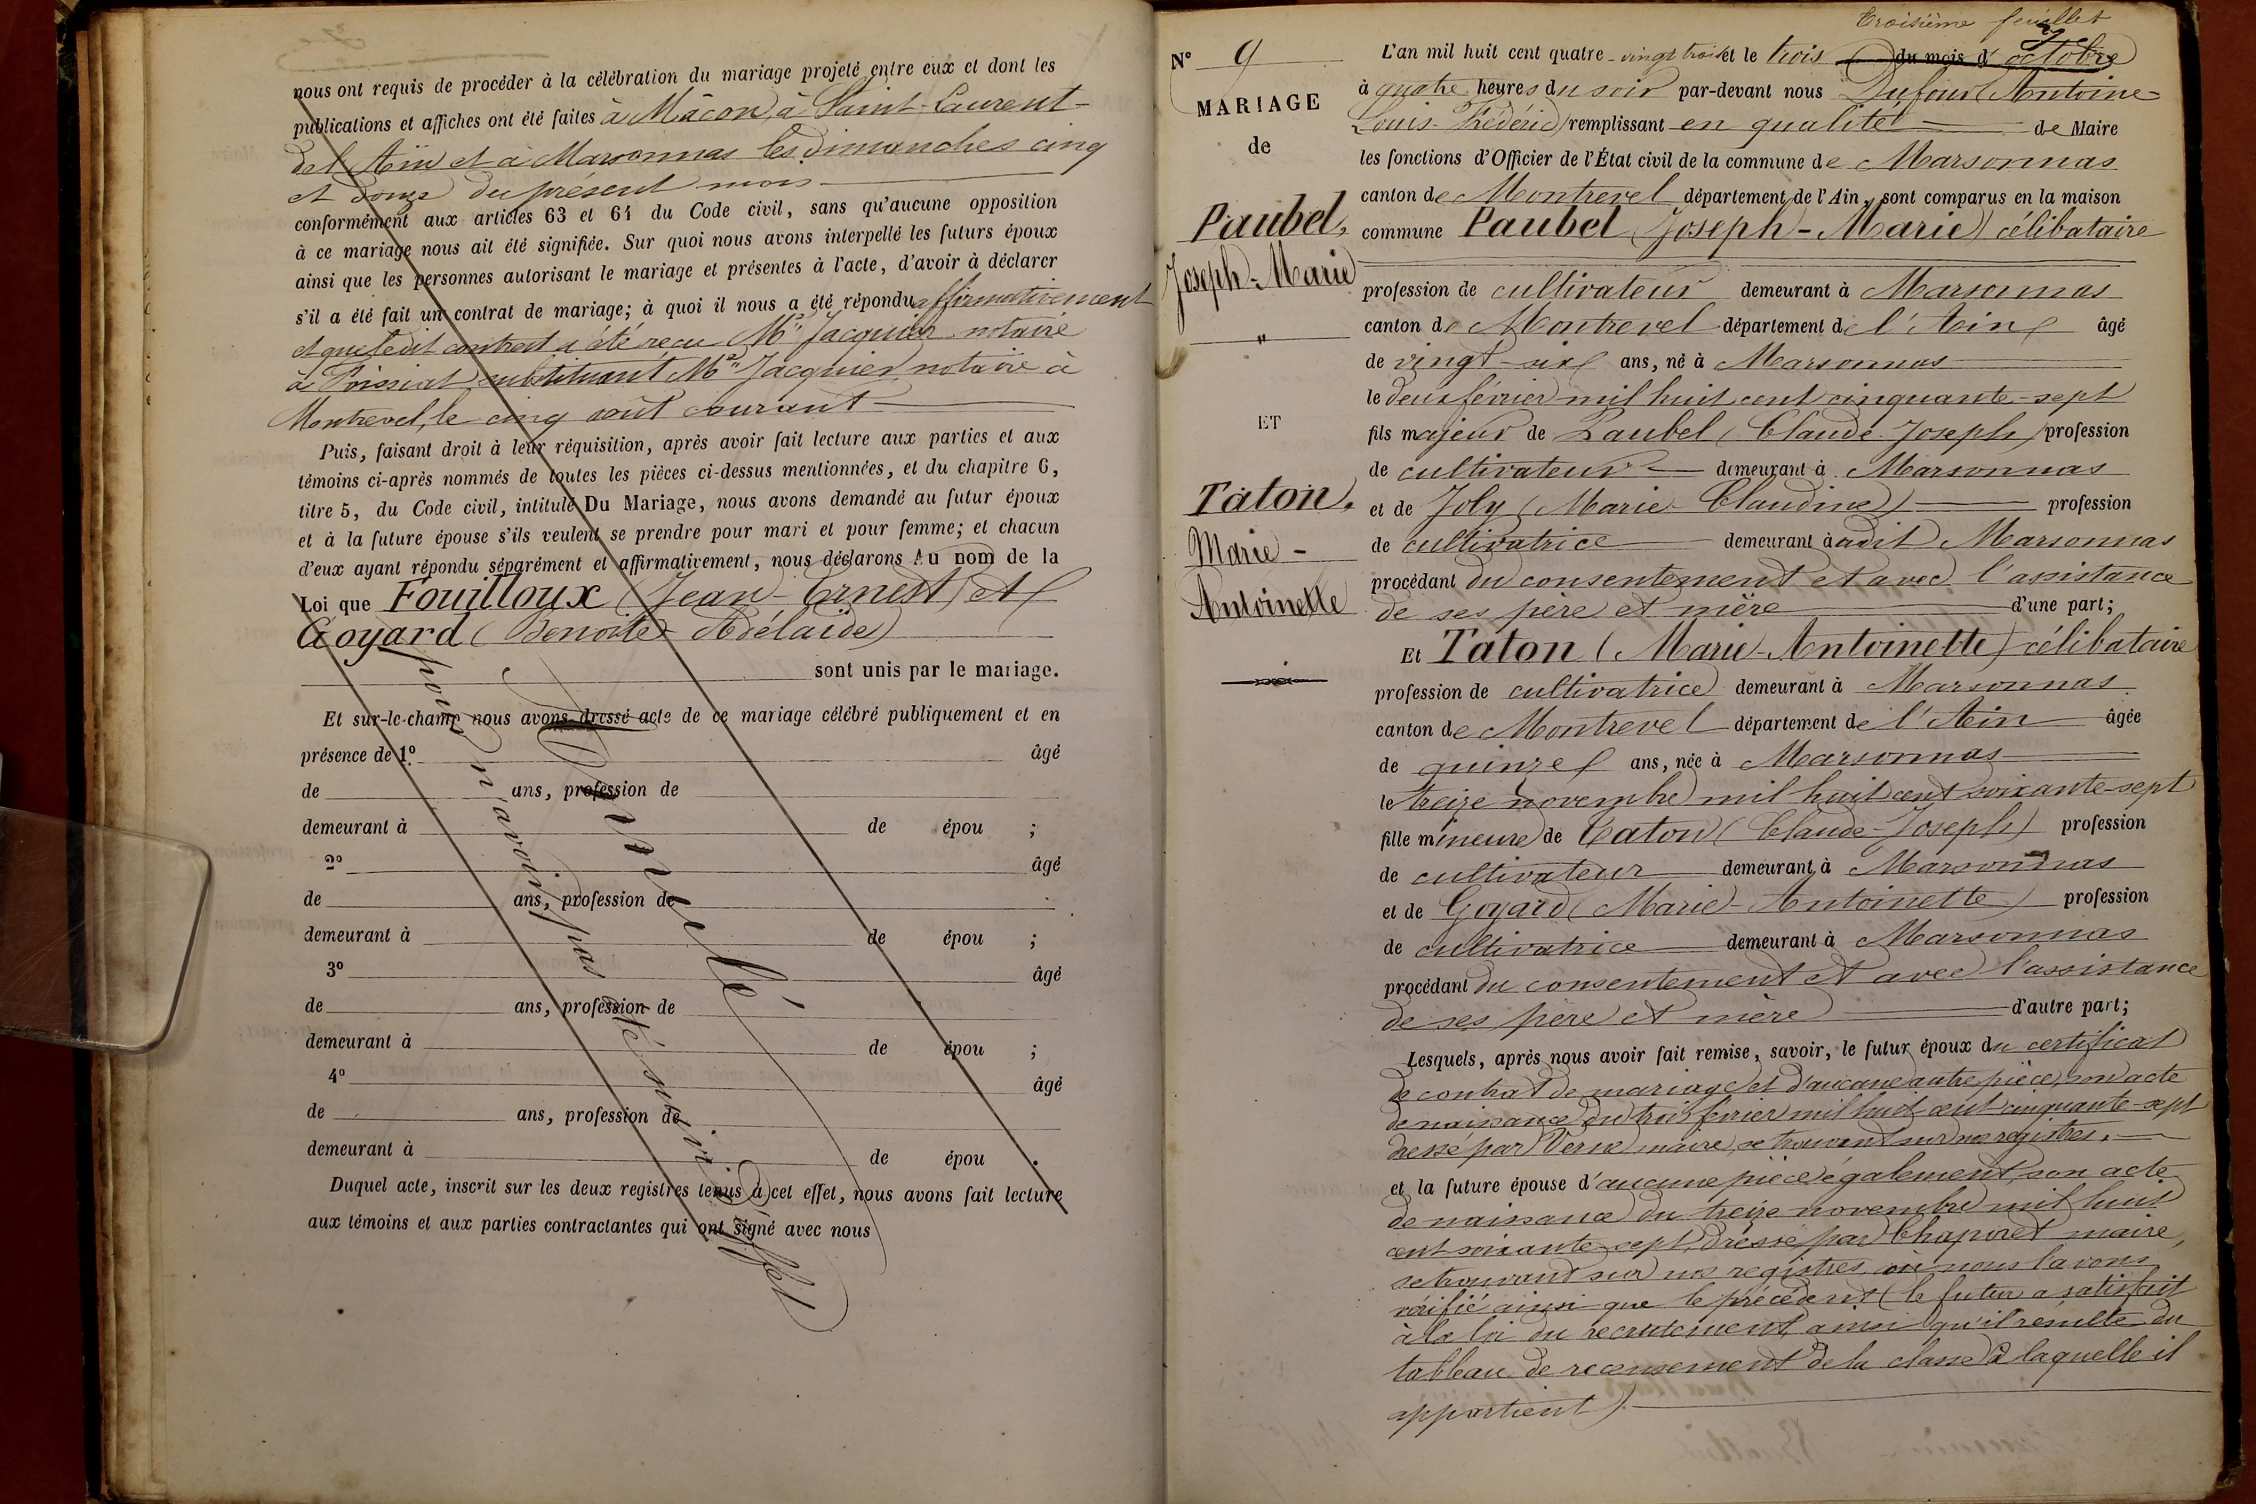 nous ont requis de procéder à la célébration du mariage projeté entre eux et dont les
publications et affiches ont été faites à Mâcon, à Saint-Laurent-
de l'Ain et à Marsonnas les dimanches cinq
et douze du présent mois
conformément aux articles 63 et 64 du Code civil, sans qu'aucune opposition
à ce mariage nous ait été signifiée. Sur quoi nous avons interpellé les futurs époux
ainsi que les personnes autorisant le mariage et présentes à l'acte, d'avoir à déclarer
s'il a été fait un contrat de mariage; à quoi il nous a été répondu affirmativement
et que ledit contrat a été reçu Me Jacquier notaire
à Foissiat substituant Me Jacquier notaire à
Montrevel, le cinq août courant
Puis, faisant droit à leur réquisition, après avoir fait lecture aux parties et aux
témoins ci-après nommés de toutes les pièces ci-dessus mentionnées, et du chapitre 6,
titre 5, du Code civil, intitulé Du Mariage, nous avons demandé au futur époux
et à la future épouse s'ils veulent se prendre pour mari et pour femme; et chacun
d'eux ayant répondu séparément et affirmativement, nous déclarons Au nom de la
Loi que Fouilloux (Jean-Ernest) et
Goyard (Benoite-Adélaïde)
sont unis par le mariage.
Et sur-le-champ nous avons dressé acte de ce mariage célébré publiquement et en
présence de 1º. âgé
de ans, profession de
demeurant à de épou ;
2º âgé
de ans, profession de
demeurant à de épou ;
3º âgé
de ans, profession de
demeurant à de épou ;
4º âgé
de ans, profession de
demeurant à de épou .
Duquel acte, inscrit sur les deux registres tenus à cet effet, nous avons fait lecture
aux témoins et aux parties contractantes qui ont signé avec nous
Annulé
pour n'avoir pas été suivi d'effet
Troisième feuillet
Nº 9
MARIAGE
de
Paubel,
Joseph-Marie
"
ET
Taton,
Marie-
Antoinette
L'an mil huit cent quatre-vingt trois et le trois du mois d'octobre
à quatre heures du soir par-devant nous Dufour (Antoine-
Louis-Frédéric) remplissant en qualité de Maire
les fonctions d'Officier de l'État civil de la commune de Marsonnas
canton de Montrevel département de l'Ain, sont comparus en la maison
commune Paubel (Joseph-Marie) célibataire
profession de cultivateur demeurant à Marsonnas
canton de Montrevel département de l'Ain âgé
de vingt-six ans, né à Marsonnas
le deux février mil huit cent cinquante-sept
fils majeur de Paubel (Claude-Joseph) profession
de cultivateur demeurant à Marsonnas
et de Joly (Marie-Claudine) profession
de cultivatrice demeurant à audit Marsonnas
procédant du consentement et avec l'assistance
de ses père et mère d'une part;
Et Taton (Marie-Antoinette) célibataire
profession de cultivatrice demeurant à Marsonnas
canton de Montrevel département de l'Ain âgée
de quinze ans, née à Marsonnas
le treize novembre mil huit cent soixante-sept
fille mineure de Taton (Claude-Joseph) profession
de cultivateur demeurant à Marsonnas
et de Goyard (Marie-Antoinette) profession
de cultivatrice demeurant à Marsonnas
procédant du consentement et avec l'assistance
de ses père et mère d'autre part;
Lesquels, après nous avoir fait remise, savoir, le futur époux du certificat
de contrat de mariage et d'aucune autre pièce, son acte
de naissance du trois février mil huit cent cinquante-sept
dressé par Verne maire, se trouvant sur nos registres.
et la future épouse d'aucune pièce également, son acte
de naissance du treize novembre mil huit
cent soixante-sept, dressé par Chaponet maire,
se trouvant sur nos registres où nous l'avons
vérifié ainsi que le précédent (le futur a satisfait
à la loi du recrutement ainsi qu'il résulte du
tableau de recensement de la classe à laquelle il
appartient).